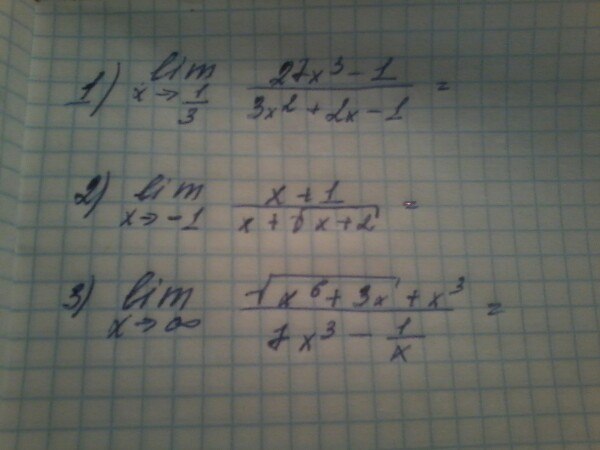 1) lim x→1/3 (27x³ - 1)/(3x² + 2x - 1) =
2) lim x→-1 (x + 1)/(x + √(x + 2)) =
3) lim x→∞ (√(x⁶ + 3x) + x³)/(7x³ - 1/x) =